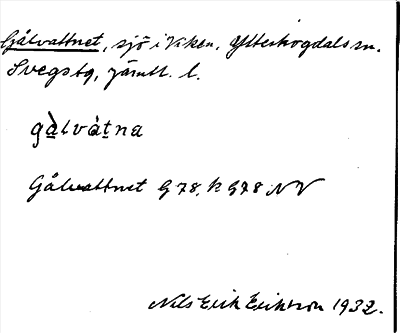 Gålvattnet, sjö i Viken, Ytterhogdals sn.
Svegs tg, Jämtl. l.
gàlvàtna
Gålvattnet G 78, k G78 NV
Nils Erik Erikson 1932.